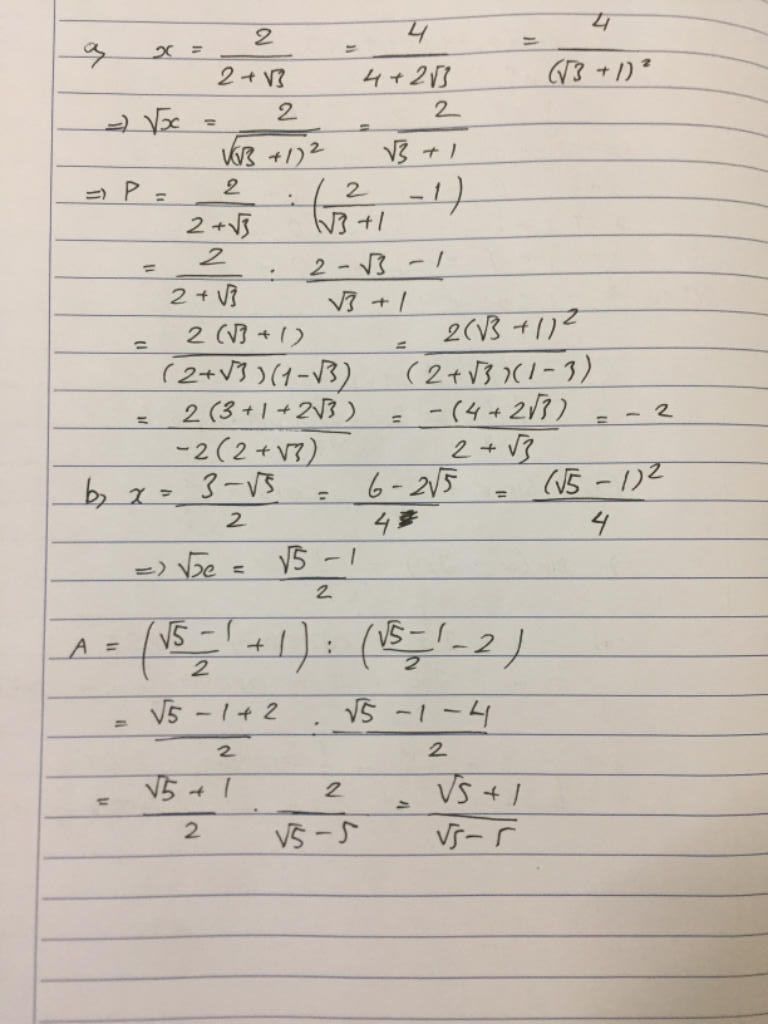 a, x = 2/(2 + √3) = 4/(4 + 2√3) = 4/(√3 + 1)²
=> √x = 2/√(√3 + 1)² = 2/(√3 + 1)
=> P = 2/(2 + √3) : (2/(√3 + 1) - 1)
= 2/(2 + √3) : (2 - √3 - 1)/(√3 + 1)
= 2(√3 + 1)/((2 + √3)(1 - √3)) = 2(√3 + 1)²/((2 + √3)(1 - 3))
= 2(3 + 1 + 2√3)/(-2(2 + √3)) = -(4 + 2√3)/(2 + √3) = - 2
b, x = (3 - √5)/2 = (6 - 2√5)/4 = (√5 - 1)²/4
=> √x = (√5 - 1)/2
A = ((√5 - 1)/2 + 1) : ((√5 - 1)/2 - 2)
= (√5 - 1 + 2)/2 : (√5 - 1 - 4)/2
= (√5 + 1)/2 . 2/(√5 - 5) = (√5 + 1)/(√5 - 5)